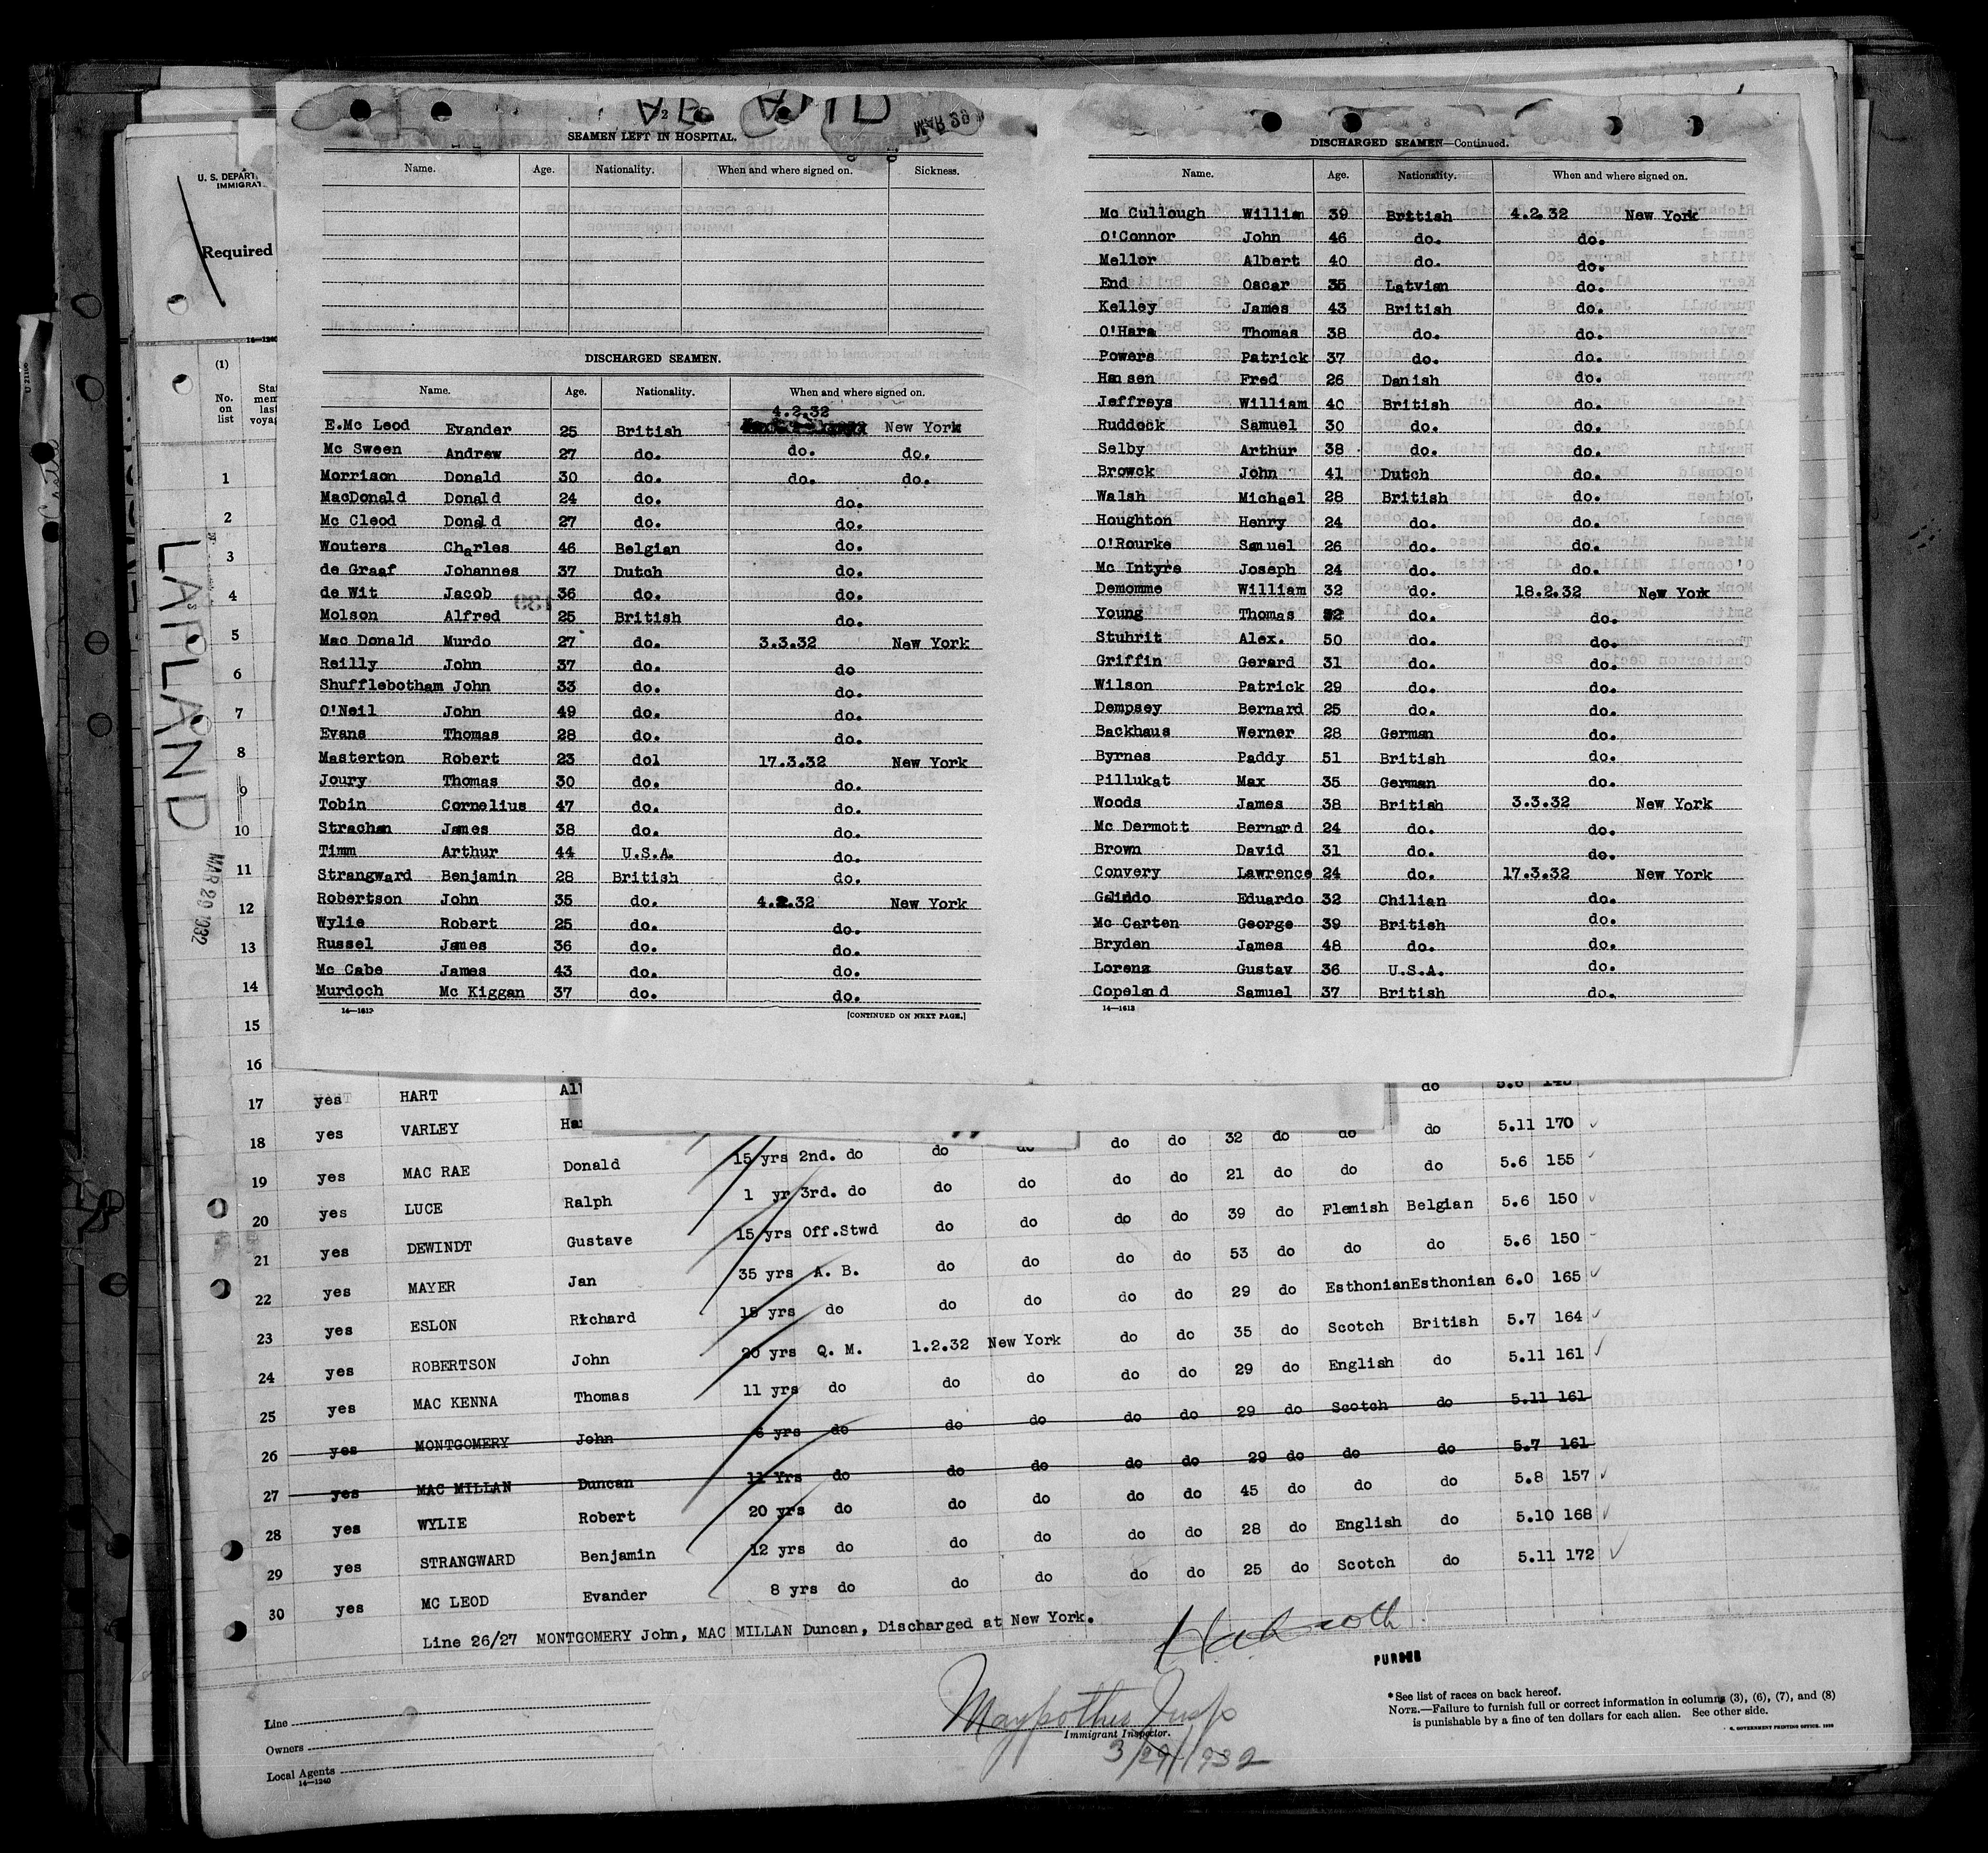 SEAMEN LEFT IN HOSPITAL.
Name. Age. Nationality. When and where signed on. Sickness.
DISCHARGED SEAMEN.
Name. Age. Nationality. When and where signed on.
4.2.32
E.Mc Leod Evander 25 British New York
Mc Sween Andrew 27 do. do. do.
Morrison Donald 30 do. do. do.
MacDonald Donald 24 do. do.
Mc Cleod Donald 27 do. do.
Wouters Charles 46 Belgian do.
de Graaf Johannes 37 Dutch do.
de Wit Jacob 36 do. do.
Molson Alfred 25 British do.
Mac Donald Murdo 27 do. 3.3.32 New York
Reilly John 37 do. do
Shufflebotham John 33 do. do.
O'Neil John 49 do. do.
Evans Thomas 28 do. do.
Masterton Robert 23 dol 17.3.32 New York
Joury Thomas 30 do. do.
Tobin Cornelius 47 do. do.
Strachan James 38 do. do.
Timm Arthur 44 U.S.A. do.
Strangward Benjamin 28 British do.
Robertson John 35 do. 4.2.32 New York
Wylie Robert 25 do. do.
Russel James 36 do. do.
Mc Cabe James 43 do. do.
Murdoch Mc Kiggan 37 do. do.
14—1613
[CONTINUED ON NEXT PAGE.]
DISCHARGED SEAMEN—Continued.
Name. Age. Nationality. When and where signed on.
Mc Cullough William 39 British 4.2.32 New York
O'Connor John 46 do. do.
Mellor Albert 40 do. do.
End Oscar 35 Latvian do.
Kelley James 43 British do.
O'Hara Thomas 38 do. do.
Powers Patrick 37 do. do.
Hansen Fred 26 Danish do.
Jeffreys William 40 British do.
Ruddock Samuel 30 do. do.
Selby Arthur 38 do. do.
Browck John 41 Dutch do.
Walsh Michael 28 British do.
Houghton Henry 24 do. do.
O'Rourke Samuel 26 do. do.
Mc Intyre Joseph 24 do. do.
Demomme William 32 do. 18.2.32 New York
Young Thomas 32 do. do.
Stuhrit Alex. 50 do. do.
Griffin Gerard 31 do. do.
Wilson Patrick 29 do. do.
Dempsey Bernard 25 do. do.
Backhaus Werner 28 German do.
Byrnes Paddy 51 British do.
Pillukat Max 35 German do.
Woods James 38 British 3.3.32 New York
Mc Dermott Bernard 24 do. do.
Brown David 31 do. do.
Convery Lawrence 24 do. 17.3.32 New York
Galindo Eduardo 32 Chilian do.
Mc Carten George 39 British do.
Bryden James 48 do. do.
Lorenz Gustav 36 U.S.A. do.
Copeland Samuel 37 British do.
14—1613
U. S. DEPART
IMMIGRAT
Required
14—1240
(1)
No. on list
LAPLAND
MAR 29 1932
1
2
3
4
5
6
7
8
9
10
11
12
13
14
15
16
17 yes HART do 5.6
18 yes VARLEY do do 32 do do do 5.11 170
19 yes MAC RAE Donald 15 yrs 2nd. do do do do do 21 do do do 5.6 155
20 yes LUCE Ralph 1 yr 3rd. do do do do do 39 do Flemish Belgian 5.6 150
21 yes DEWINDT Gustave 15 yrs Off.Stwd do do do do 53 do do do 5.6 150
22 yes MAYER Jan 35 yrs A. B. do do do do 29 do Esthonian Esthonian 6.0 165
23 yes ESLON Richard 18 yrs do do do do do 35 do Scotch British 5.7 164
24 yes ROBERTSON John 20 yrs Q. M. 1.2.32 New York do do 29 do English do 5.11 161
25 yes MAC KENNA Thomas 11 yrs do do do do do 29 do Scotch do 5.11 161
26 yes MONTGOMERY John 6 yrs do do do do do 29 do do do 5.7 161
27 yes MAC MILLAN Duncan 11 Yrs do do do do do 45 do do do 5.8 157
28 yes WYLIE Robert 20 yrs do do do do do 28 do English do 5.10 168
29 yes STRANGWARD Benjamin 12 yrs do do do do do 25 do Scotch do 5.11 172
30 yes MC LEOD Evander 8 yrs do do do
Line 26/27 MONTGOMERY John, MAC MILLAN Duncan, Discharged at New York.
PURSER
Line
Owners
Local Agents
14—1240
Immigrant Inspector.
3/29/1932
*See list of races on back hereof.
NOTE.—Failure to furnish full or correct information in columns (3), (6), (7), and (8)
is punishable by a fine of ten dollars for each alien. See other side.